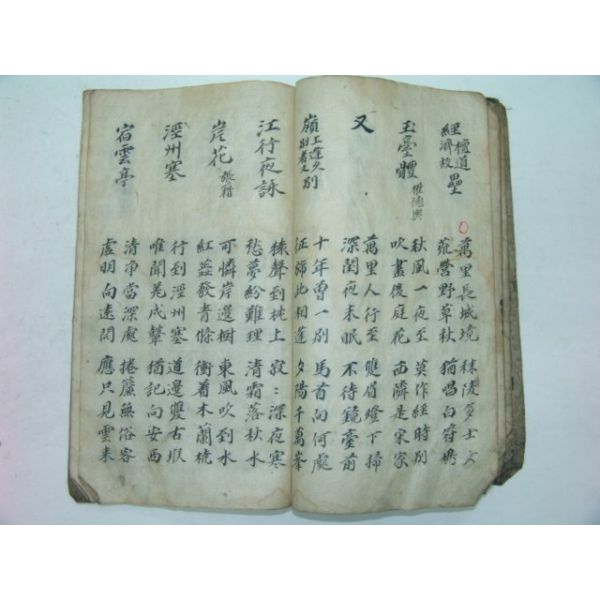 經檀道濟故壘
萬里長城境　秣陵多士女
荒營野草秋　猶唱白符鳩
玉臺體　權德輿
秋風一夜至　莫作經時別
吹盡後庭花　西隣是宋家
又
萬里人行至　雙眉燈下掃
深閨夜未眠　不待鏡臺前
嶺上逢久別者又別
十年曾一別　馬首向何處
征路此相逢　夕陽千萬峯
江行夜詠
猿聲到枕上　寂〻深夜寒
愁夢紛難理　清霜落秋水
岸花　張籍
可憐岸邊樹　東風吹到水
紅蕊發青條　衝着木蘭橈
涇州塞
行到涇州塞　道邊雙古堠
唯聞羌戍鼙　猶記向安西
宿雲亭
清净當深處　捲簾無俗客
虛明向遠開　應只見雲來